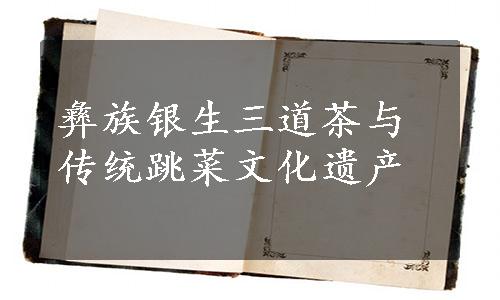 彝族银生三道茶与
传统跳菜文化遗产